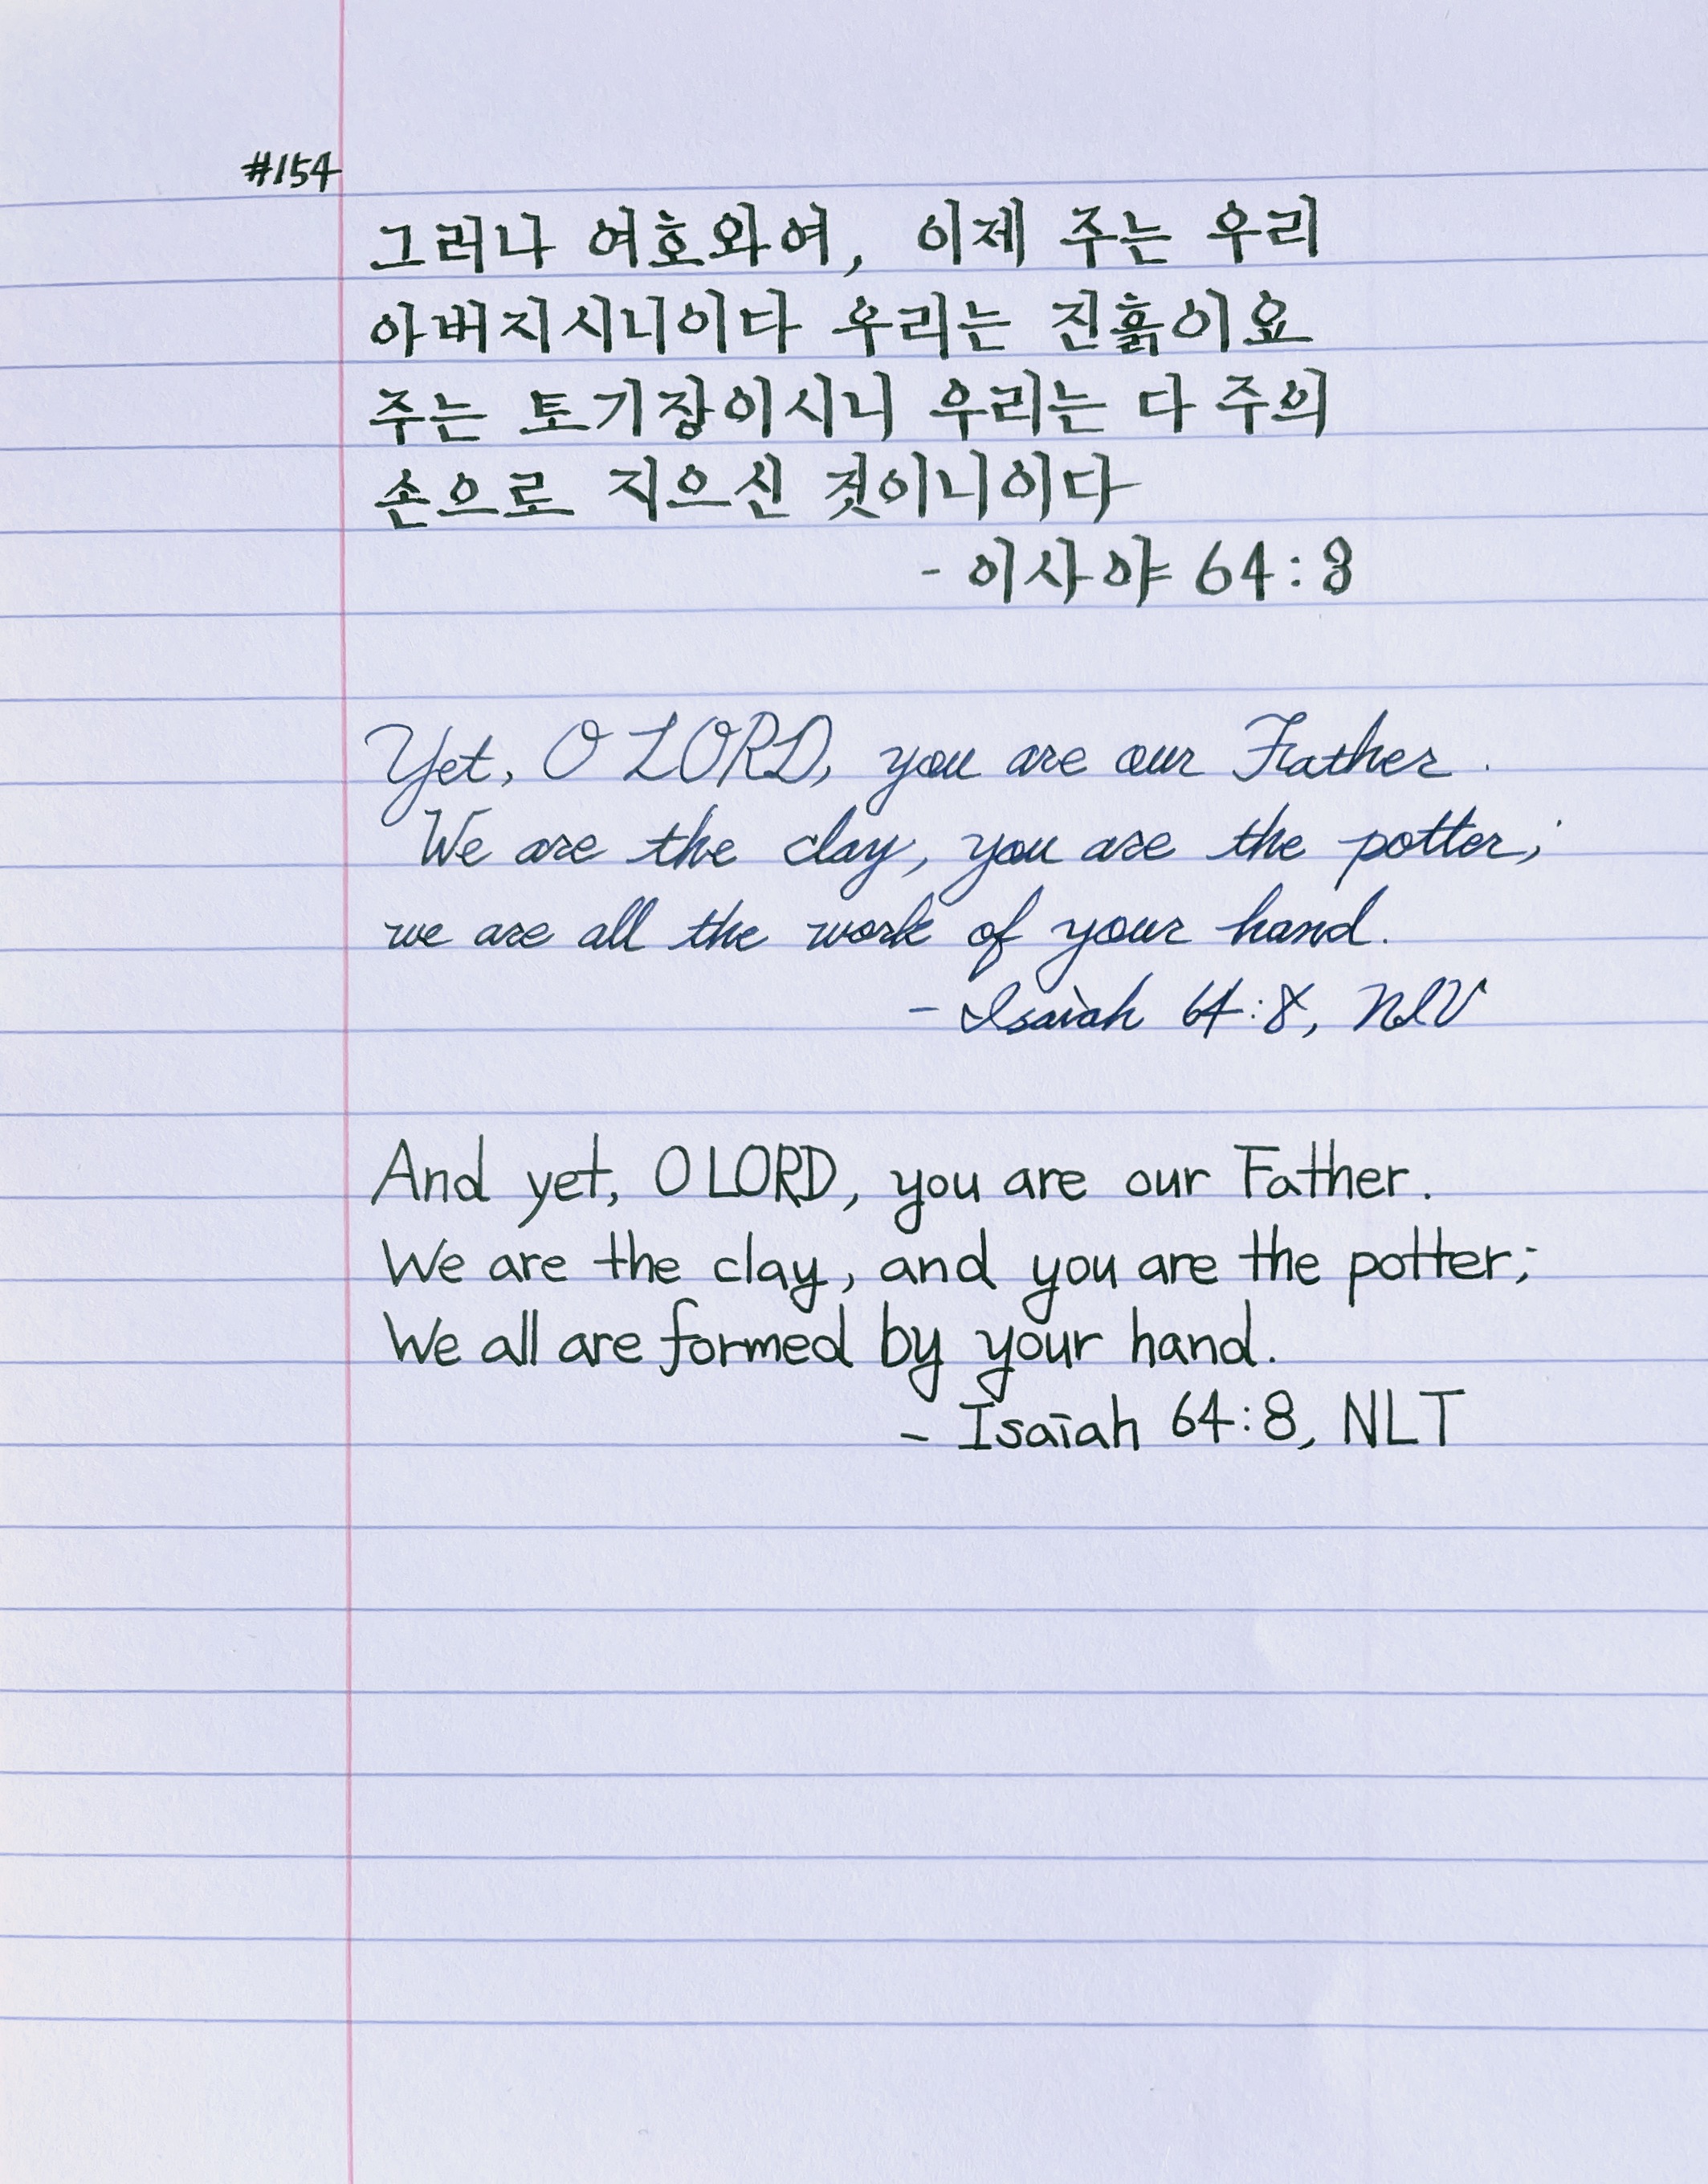 #154
그러나 여호와여, 이제 주는 우리
아버지시니이다 우리는 진흙이요
주는 토기장이시니 우리는 다 주의
손으로 지으신 것이니이다
- 이사야 64:8
Yet, O LORD, you are our Father.
We are the clay, you are the potter;
we are all the work of your hand.
- Isaiah 64:8, NIV
And yet, O LORD, you are our Father.
We are the clay, and you are the potter;
We all are formed by your hand.
- Isaiah 64:8, NLT